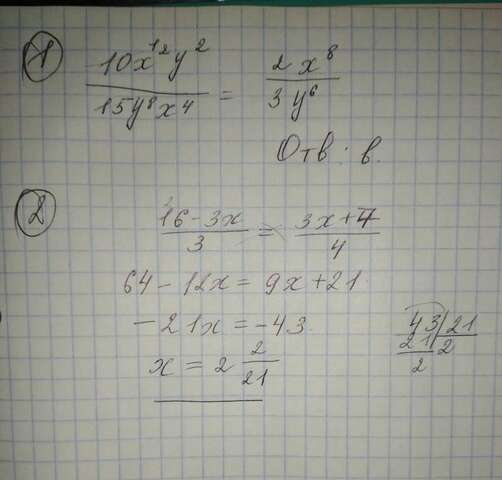 1
10x¹²y² / 15y⁸x⁴ = 2x⁸ / 3y⁶
Отв: в.
2
16-3x / 3 = 3x+7 / 4
64-12x=9x+21
-21x=-43.
x=2 2/21
43 | 21
21 | 2
2